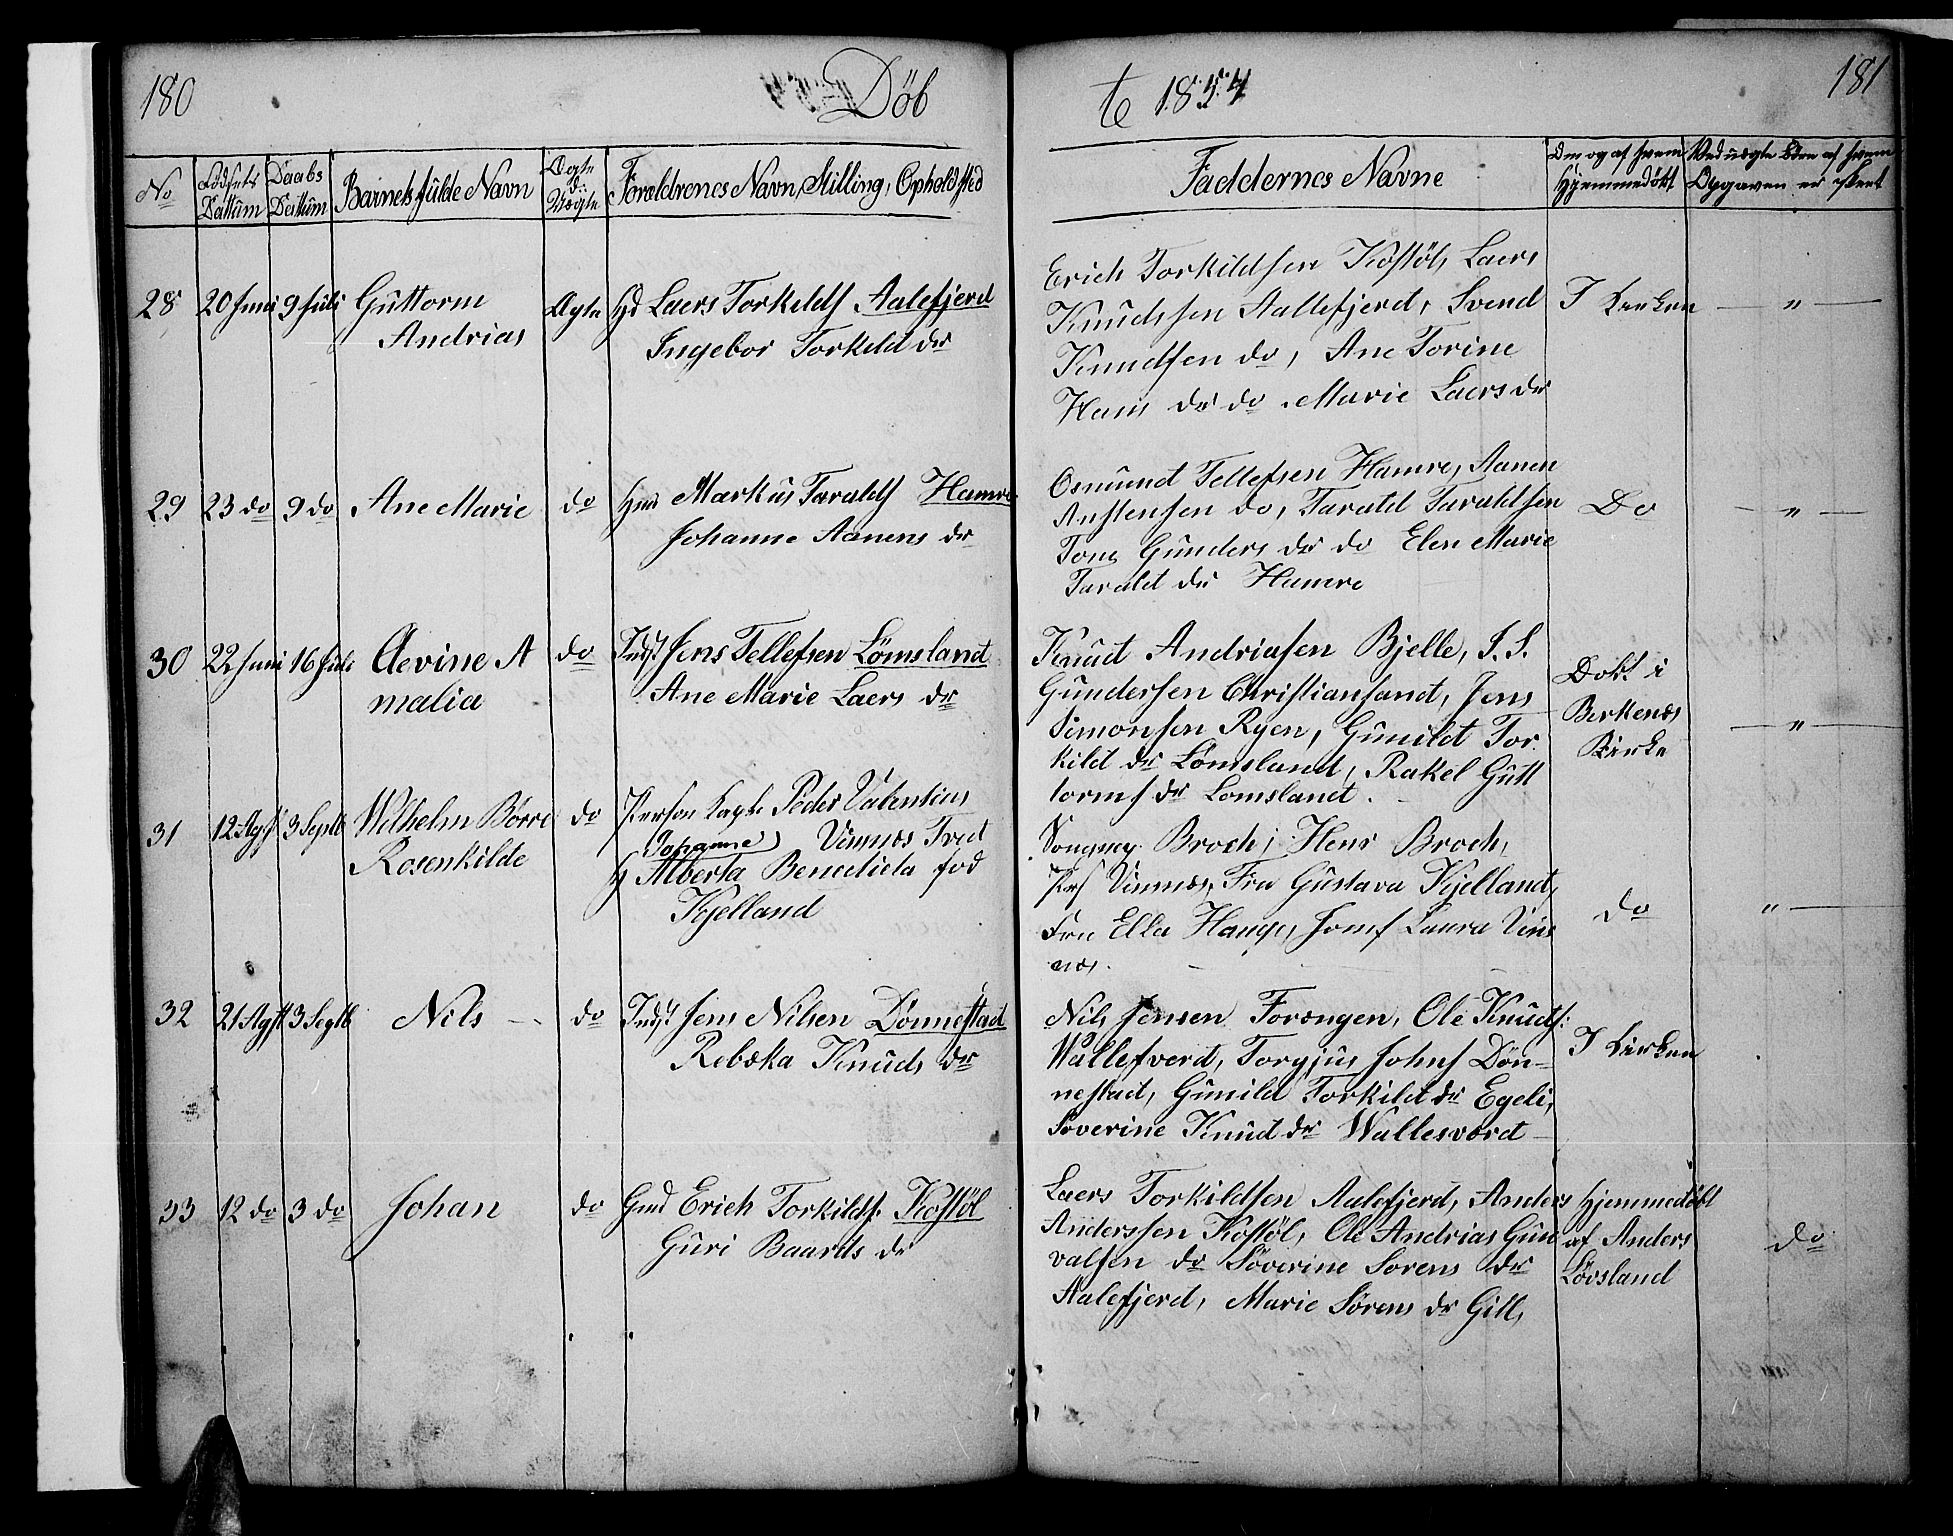 180
Döb
te 1854
181
No
Födsels Dattum
Daabs Dattum
Barnets fulde Navn
Ægte d: Uægte
Foreldrenes Navn, Stilling, Opholdsted
Faddernes Navne
Om og af hvem Hjemmedöbt
Ved uægte Börn af hvem Opgaven er skeet
28 20 Juni 9 Juli Guttorm
Andrias
Ægte
Laers Torkilds Aalefjerd
Ingebor Torkild dr
Erich Torkildsen Kostöl, Laers
Knudssen Aallefjerd, Svend
Knudsen do, Ane Torine
Hans dr do Marie Laers dr
I Kirken
"
29 23 do 9 do Ane Marie do
Markus Taralds Hamre
Johanne Aanens dr
Osmund Tellefsen Hamre, Aanen
Anstensen do, Tarald Taraldsen
Tone Gunders dr do Elen Marie
Tarald dr Hamre
Do
"
30 22 Juni 16 Juli Aevine A
malia
do
Indst Jens Tellefsen Lömsland
Ane Marie Laers dr
Knud Andriasen Bjelle, S. S.
Gundersen Christiansand, Jens
Simonsen Ryen, Gunild Tor
kild dr Lömsland, Rakel Gutt
torms dr Lomsland.
Dobt i
Berkenæs
Kirke
"
31 12 Agst 3 Septb Wilhelm Börre
Rosenkilde
do
Person Kapt Peder Valentius
Johanne Vinnæs Tved
Alberta Benedicta fod
Kjelland
Broch, Henr Broch,
Vinnæs, Fru Gustava Kjelland,
Fru Ella Hauge, Jomf Laura Vin
næs.
do
"
32 21 Agst 3 Septb Nils do
Indst Jens Nilsen Dönnestad
Rebæka Knuds dr
Nils Jensen Forængen, Ole Knuds:
Wallesverd, Torgjus Johns Dön-
nestad, Gunild Torkild dr Egeli,
Soverine Knud dr Wallesværd
I Kirken
33 12 do 3 do Johan do
Gmd Erich Torkilds. Kostöl
Guri Baards dr
Laers Torkildsen Aalefjerd, Anders
Anderssen Kostöl, Ole Andrias Gun
valsen do Söverine Sorens dr
Aalefjerd, Marie Sörens dr Gill,
Hjemmedöbt
af Anders
Lövsland
do